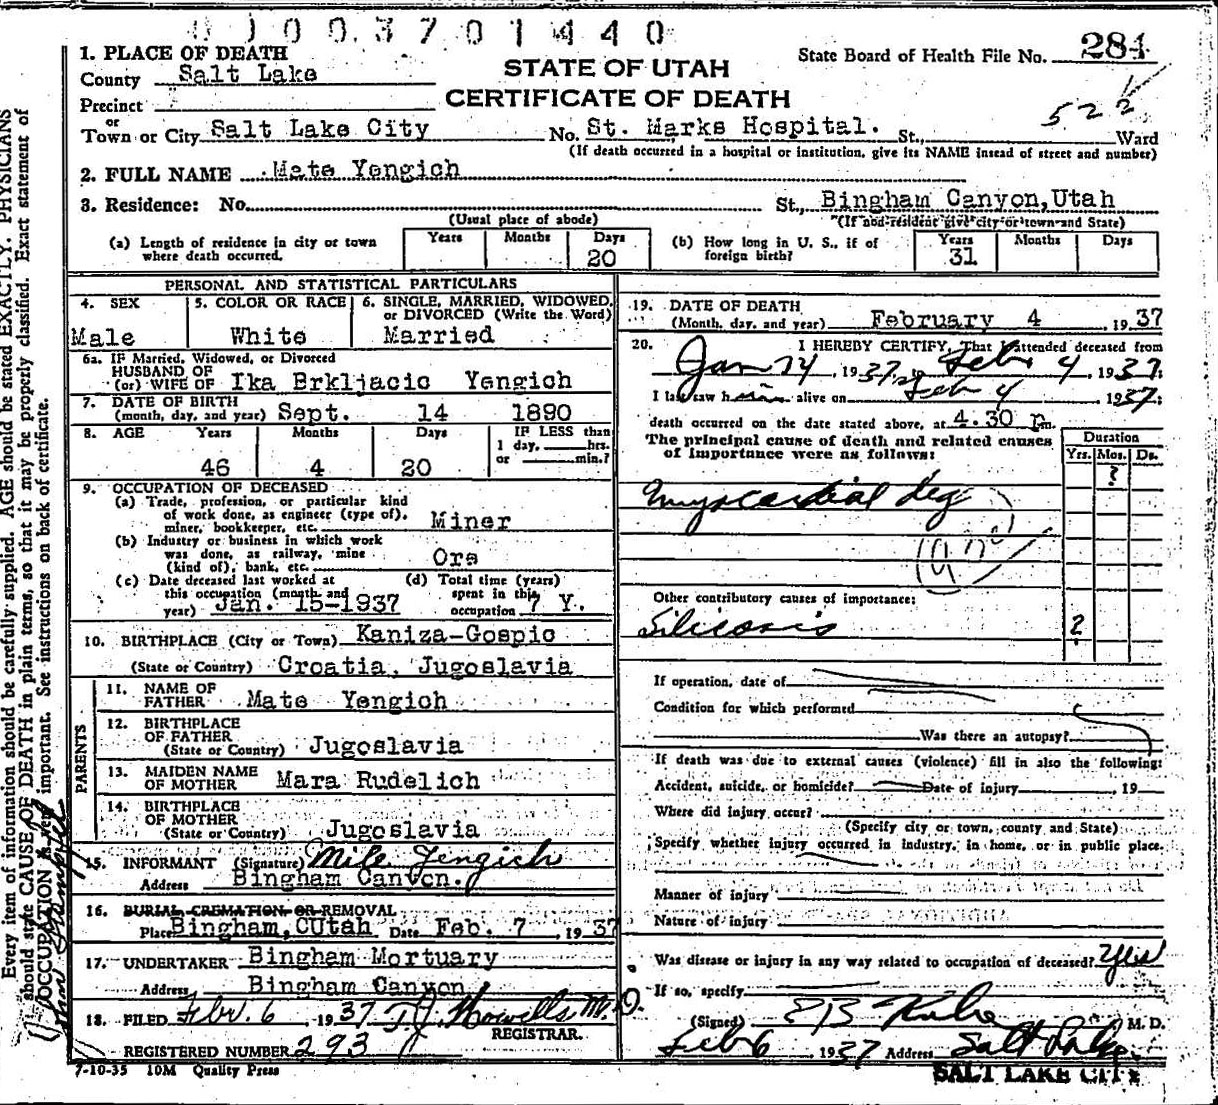 0 1 0 0 3 7 0 1 4 4 0
STATE OF UTAH
CERTIFICATE OF DEATH
State Board of Health File No. 284
522
1. PLACE OF DEATH
County Salt Lake
Precinct
or
Town or City Salt Lake City No. St. Marks Hospital. St., Ward
(If death occurred in a hospital or institution, give its NAME instead of street and number)
2. FULL NAME Mate Yengich
3. Residence: No. St., Bingham Canyon, Utah
(Usual place of abode) (If non-resident give city or town and State)
(a) Length of residence in city or town where death occurred. Years Months Days 20
(b) How long in U. S., if of foreign birth? Years 31 Months Days
PERSONAL AND STATISTICAL PARTICULARS
4. SEX Male
5. COLOR OR RACE White
6. SINGLE, MARRIED, WIDOWED, or DIVORCED (Write the Word) Married
6a. IF Married, Widowed, or Divorced
HUSBAND OF
(or) WIFE OF Ika Brkljacic Yengich
7. DATE OF BIRTH
(month, day, and year) Sept. 14 1890
8. AGE Years 46 Months 4 Days 20
IF LESS than
1 day, hrs.
or min.?
9. OCCUPATION OF DECEASED
(a) Trade, profession, or particular kind
of work done, as engineer (type of),
miner, bookkeeper, etc. Miner
(b) Industry or business in which work
was done, as railway, mine
(kind of), bank, etc. Ore
(c) Date deceased last worked at
this occupation (month and
year) Jan. 15-1937
(d) Total time (years)
spent in this
occupation 7 Y.
10. BIRTHPLACE (City or Town) Kaniza-Gospic
(State or Country) Croatia, Jugoslavia
PARENTS
11. NAME OF
FATHER Mate Yengich
12. BIRTHPLACE
OF FATHER
(State or Country) Jugoslavia
13. MAIDEN NAME
OF MOTHER Mara Rudelich
14. BIRTHPLACE
OF MOTHER
(State or Country) Jugoslavia
15. INFORMANT (Signature) Mile Yengich
Address Bingham Canyon.
16. BURIAL CREMATION OR REMOVAL
Place Bingham, CUtah Date Feb. 7, 1937
17. UNDERTAKER Bingham Mortuary
Address Bingham Canyon
18. FILED Febr. 6, 1937 T.J. Howells M.D.
REGISTRAR.
REGISTERED NUMBER 293
7-10-35 10M Quality Press
19. DATE OF DEATH
(Month, day, and year) February 4, 1937
20. I HEREBY CERTIFY, That I attended deceased from
Jan 14, 1937, to Feb 4, 1937:
I last saw him alive on Feb 4 1937;
death occurred on the date stated above, at 4.30 P.m.
The principal cause of death and related causes
of importance were as follows:
Duration
Yrs. Mos. Ds.
?
myocardial deg
Other contributory causes of importance:
Silicosis ?
If operation, date of
Condition for which performed
Was there an autopsy?
If death was due to external causes (violence) fill in also the following:
Accident, suicide, or homicide? Date of injury , 19
Where did injury occur?
(Specify city or town, county and State)
Specify whether injury occurred in industry, in home, or in public place.
Manner of injury
Nature of injury
Was disease or injury in any way related to occupation of deceased? Yes
If so, specify
(Signed) M. D.
Feb 6 1937 Address Salt Lake
SALT LAKE CITY
Every item of information should be carefully supplied. AGE should be stated EXACTLY. PHYSICIANS
should state CAUSE OF DEATH in plain terms, so that it may be properly classified. Exact statement of
OCCUPATION is very important. See instructions on back of certificate.